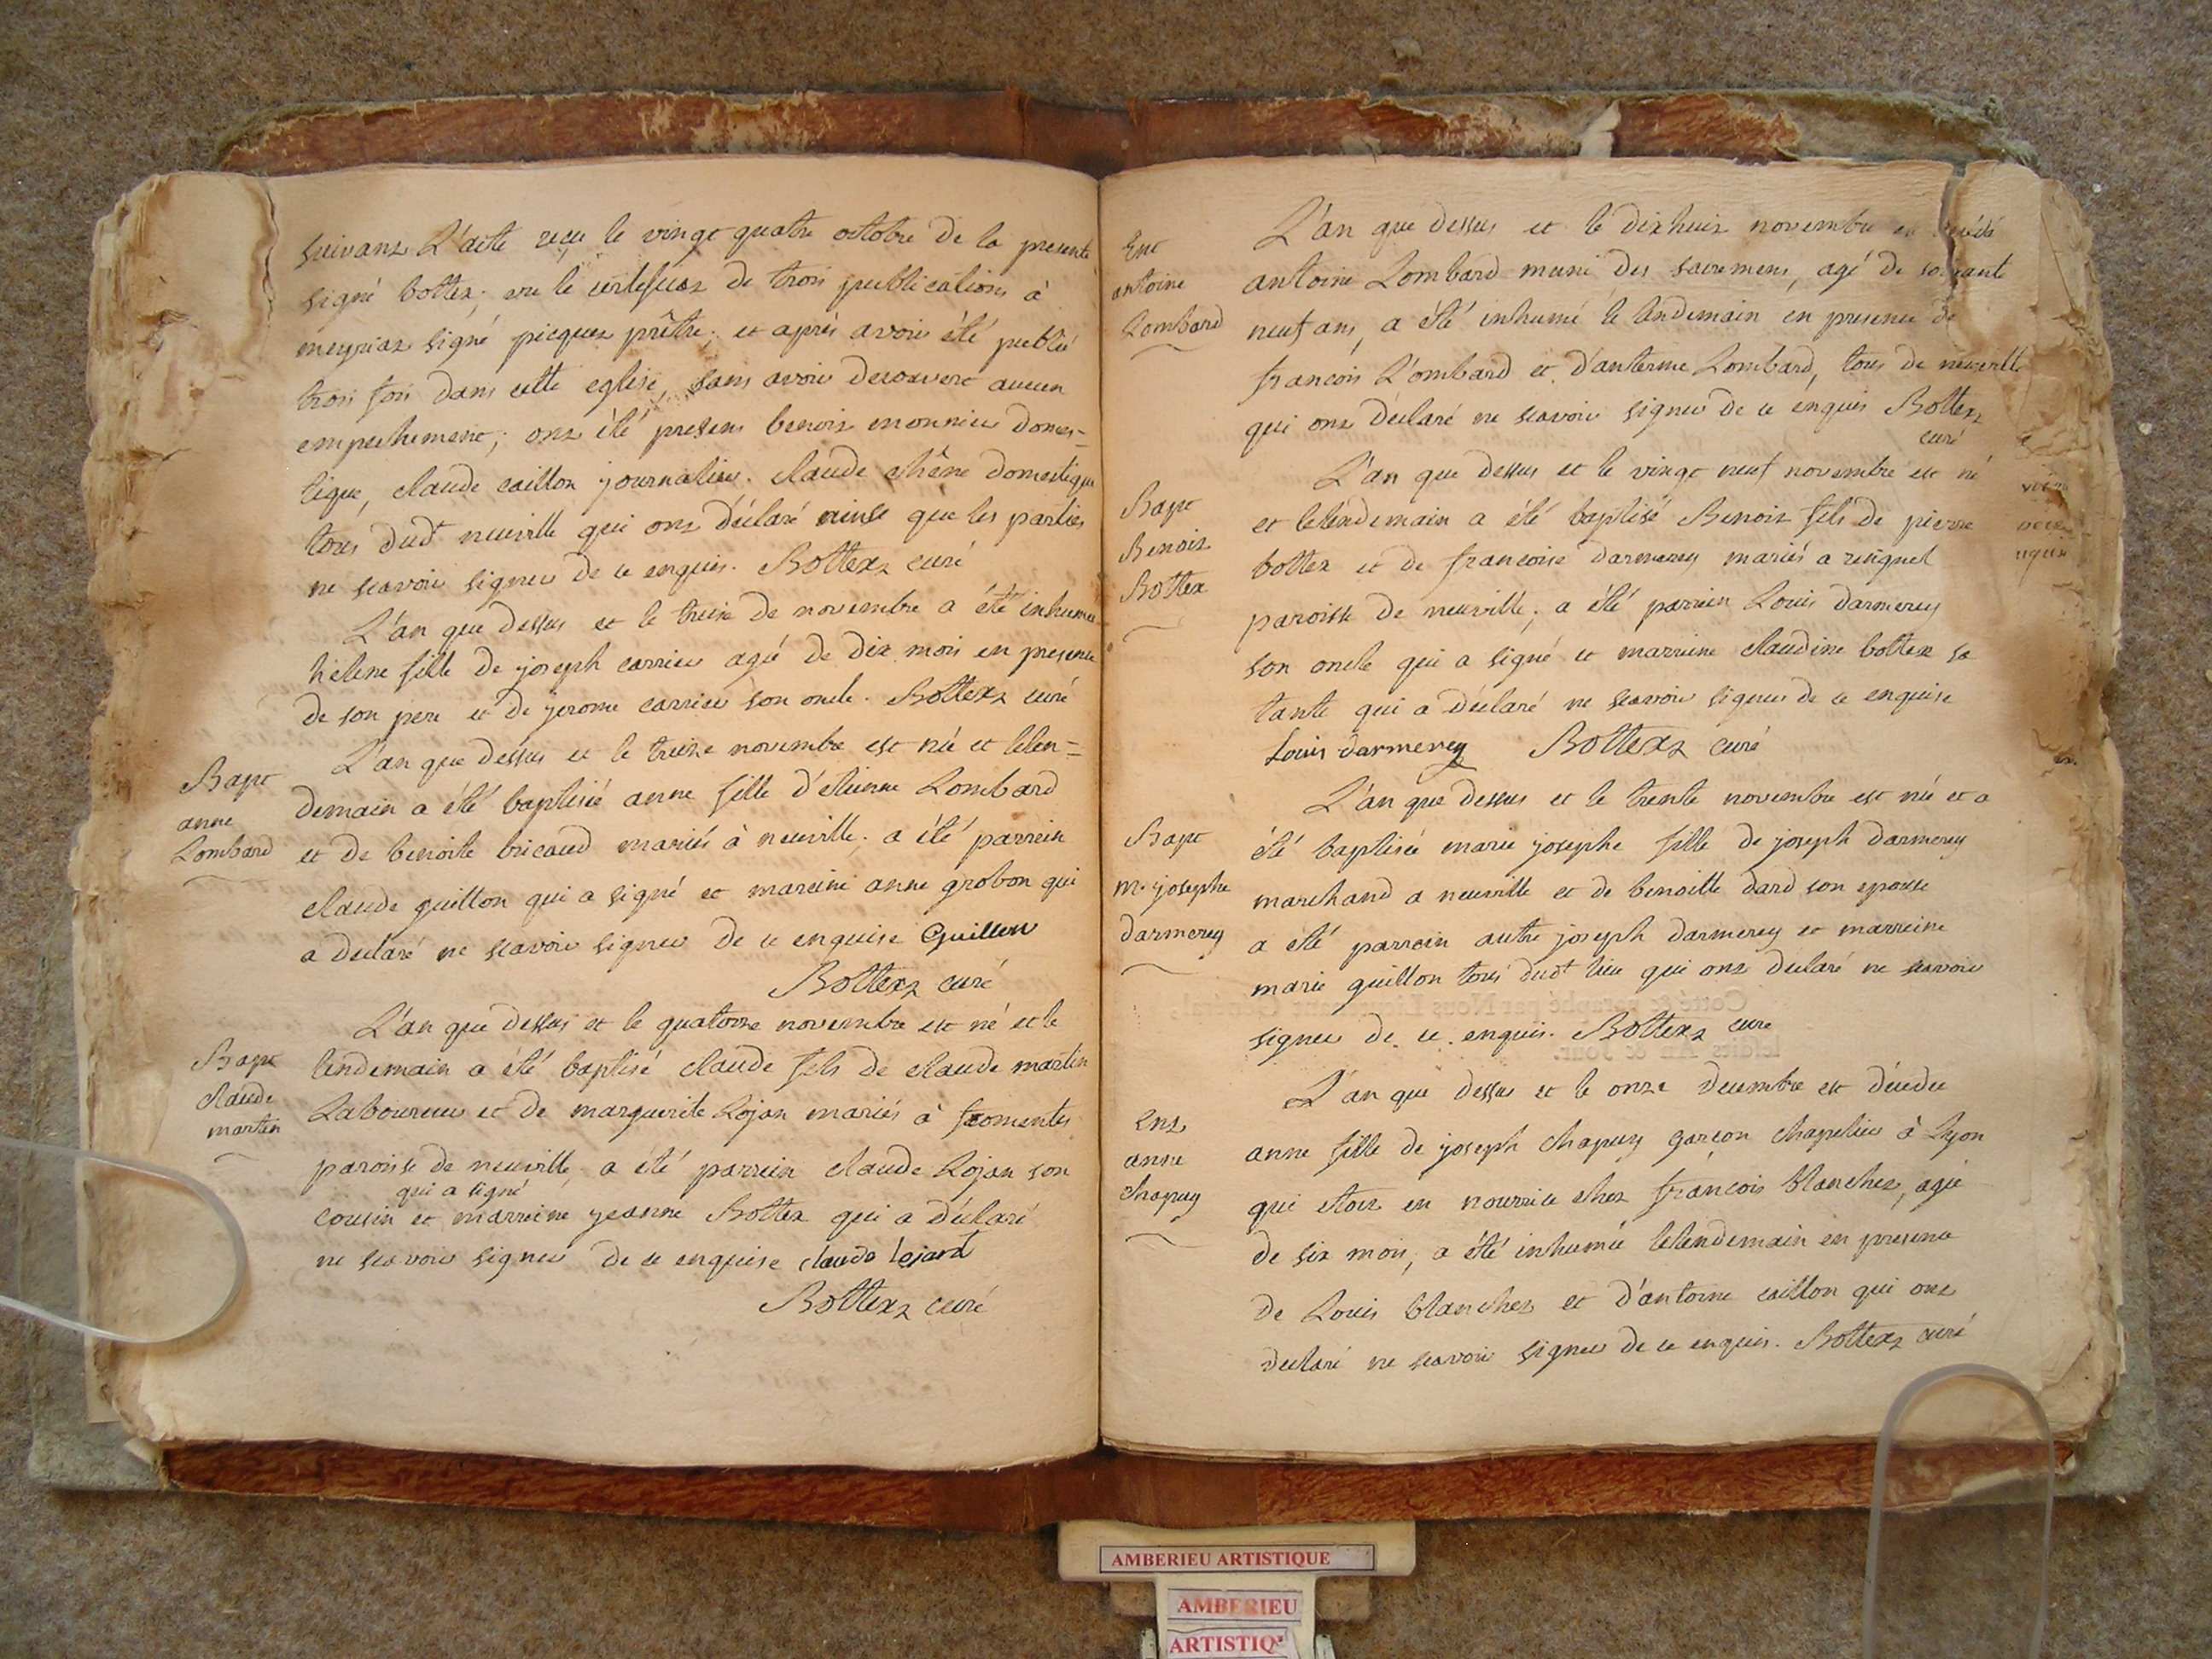 suivant L'acte reçu le vingt quatre octobre de la presente
signé bottex; vu le certificat de trois publications à
meyriat signé picquet prêtre; et après avoir été publié
trois fois dans cette eglise, sans avoir decouvert aucun
empechement; ont été presens benoit monnier domes-
tique, claude caillon journalier. claude chêne domestique
tous dudt neuville qui ont déclaré ainsi que les parties
ne scavoir signer de ce enquis. Bottex curé
L'an que dessus et le treize de novembre a été inhumée
helene fille de joseph carrier agée de dix mois en presence
de son pere et de jerome carrier son oncle. Bottex curé
Bapt
anne
Lombard
L'an que dessus et le treize novembre est née et lelen-
demain a été baptisée anne fille d'étienne Lombard
et de benoite bricaud mariés à neuville. a été parrein
claude guillon qui a signé et mareine anne grobon qui
a declaré ne scavoir signer de ce enquise Guillon
Bottex curé
Bapt
claude
martin
L'an que dessus et le quatorze novembre est né et le
lendemain a été baptisé claude fils de claude martin
Laboureur et de marguerite Lojan mariés à fromentes
paroisse de neuville, a été parrein claude Lojan son
qui a signé
cousin et marreine jeanne Bottex qui a déclaré
ne scavoir signer de ce enquise claude lejant
Bottex curé
Ent
antoine
Lombard
L'an que dessus et le dixhuit novembre est décédé
antoine Lombard muni des sacremens, agé de soixante
neuf ans, a été inhumé le lendemain en presence de
francois L'ombard et d'anterme Lombard, tous de neuville
qui ont déclaré ne scavoir signer de ce enquis Bottex
curé
Bapt
Benoit
Bottex
L'an que dessus et le vingt neuf novembre est né
et lelendemain a été baptisé Benoit fils de pierre
bottex et de francoise darmerey mariés a resignel
paroisse de neuville; a été parrein Louis darmerey
son oncle qui a signé et marreine claudine bottex sa
tante qui a déclaré ne scavoir signer de ce enquise
Louis darmerey Bottex curé
Bapt
m. josephe
darmerey
L'an que dessus et le trente novembre est née et a
été baptisée marie josephe fille de joseph darmerey
marchand a neuville et de benoitte dard son epouse
a été parrein autre joseph darmerey et marreine
marie guillon tous dudt lieu qui ont declaré ne scavoir
signer de ce enquis. Bottex curé
Ent
anne
chapuy
L'an que dessus et le onze decembre est décédée
anne fille de joseph chapuy garçon chapelier à Lyon
qui etoit en nourrice chez francois blanchet, agée
de six mois, a été inhumée lelendemain en presence
de Louis blanchet et d'antoine caillon qui ont
declaré ne scavoir signer de ce enquis. Bottex curé
AMBERIEU ARTISTIQUE
AMBERIEU
ARTISTIQ